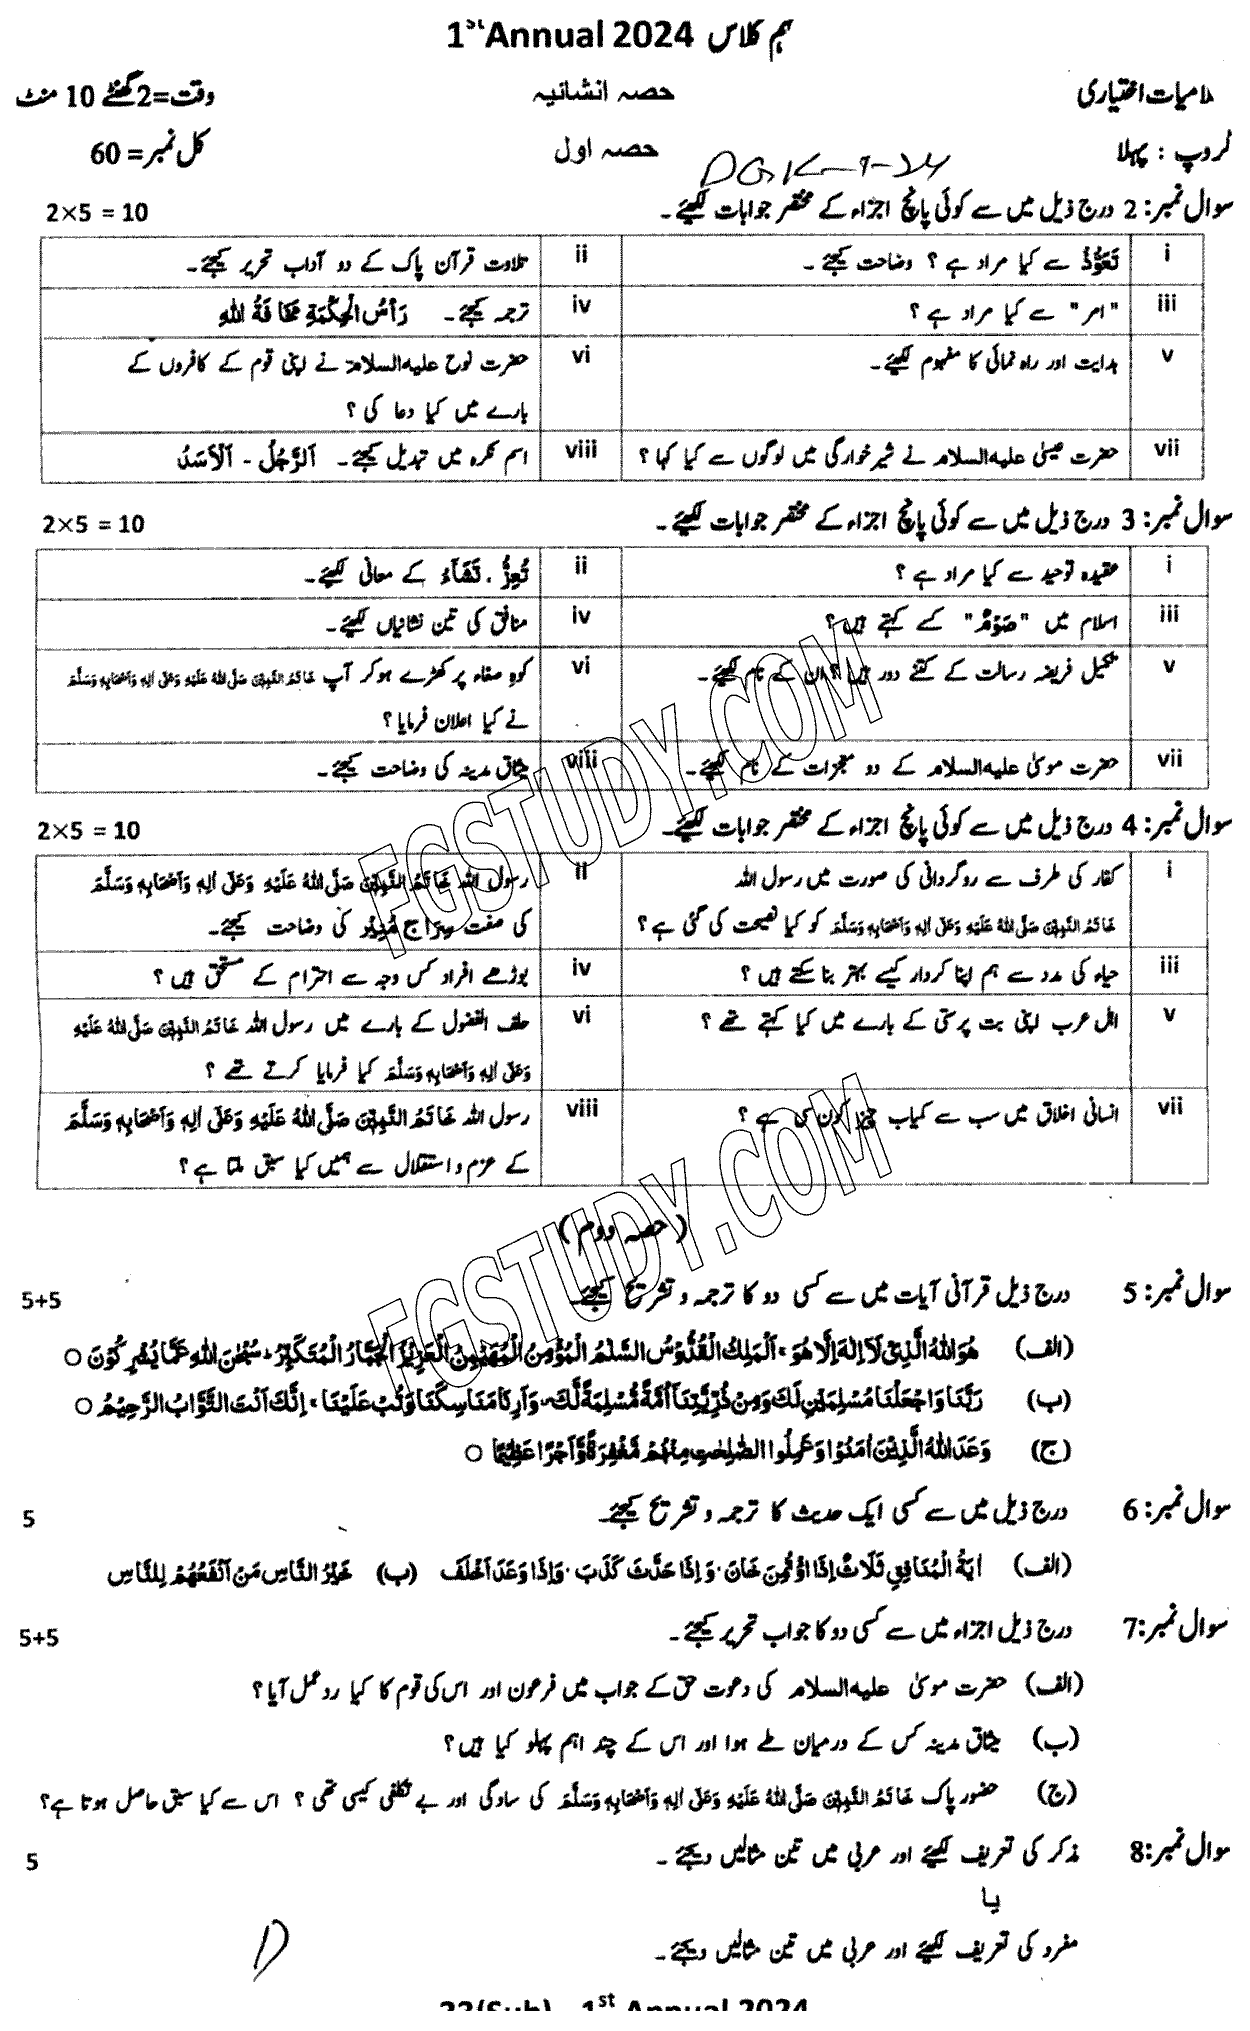 1st Annual 2024 نہم کلاس
اختیاری حصہ انشائیہ وقت=2 گھنٹے 10 منٹ
پہلا حصہ اول کل نمبر = 60
DGK-9-24
سوال نمبر: 2 درج ذیل میں سے کوئی پانچ اجزاء کے مختصر جوابات لکھیئے۔ 2×5 = 10
i تَعَوُّذْ سے کیا مراد ہے ؟ وضاحت کیجئے۔ ii تلاوت قرآن پاک کے دو آداب تحریر کیجئے۔
iii "امر" سے کیا مراد ہے ؟ iv ترجمہ کیجئے۔ رَأْسُ الْحِكْمَةِ مَخَافَةُ اللهِ
v ہدایت اور راہ نمائی کا مفہوم لکھیئے۔ vi حضرت نوح علیہ السلام نے اپنی قوم کے کافروں کے
بارے میں کیا دعا کی ؟
vii حضرت عیسیٰ علیہ السلام نے شیر خوارگی میں لوگوں سے کیا کہا ؟ viii اسم نکرہ میں تبدیل کیجئے۔ اَلرَّجُلُ - اَلْاَسَدُ
سوال نمبر: 3 درج ذیل میں سے کوئی پانچ اجزاء کے مختصر جوابات لکھیئے۔ 2×5 = 10
i عقیدہ توحید سے کیا مراد ہے ؟ ii تُعِزُّ ، تَشَآءُ کے معانی لکھیئے۔
iii اسلام میں "صَوْمٌ" کسے کہتے ہیں؟ iv منافق کی تین نشانیاں لکھیئے۔
v تکمیل فریضہ رسالت کے کتنے دور ہیں؟ ان کے نام لکھیئے۔ vi کوہِ صفاء پر کھڑے ہوکر آپ خَاتَمُ النَّبِیّٖنَ صَلَّی اللہُ عَلَیْہِ وَعَلٰی اٰلِہٖ وَاَصْحَابِہٖ وَسَلَّمَ
نے کیا اعلان فرمایا ؟
vii حضرت موسیٰ علیہ السلام کے دو معجزات کے نام لکھیئے۔ viii میثاق مدینہ کی وضاحت کیجئے۔
سوال نمبر: 4 درج ذیل میں سے کوئی پانچ اجزاء کے مختصر جوابات لکھیئے۔ 2×5 = 10
i کفار کی طرف سے روگردانی کی صورت میں رسول اللہ ii رسول اللہ خَاتَمُ النَّبِیّٖنَ صَلَّی اللہُ عَلَیْہِ وَعَلٰی اٰلِہٖ وَاَصْحَابِہٖ وَسَلَّمَ
خَاتَمُ النَّبِیّٖنَ صَلَّی اللہُ عَلَیْہِ وَعَلٰی اٰلِہٖ وَاَصْحَابِہٖ وَسَلَّمَ کو کیا نصیحت کی گئی ہے ؟ کی صفت سِرَاجٍ مُّنِیْر کی وضاحت کیجئے۔
iii حیاء کی مدد سے ہم اپنا کردار کیسے بہتر بنا سکتے ہیں ؟ iv بوڑھے افراد کس وجہ سے احترام کے مستحق ہیں ؟
v اہل عرب اپنی بت پرستی کے بارے میں کیا کہتے تھے ؟ vi حلف الفضول کے بارے میں رسول اللہ خَاتَمُ النَّبِیّٖنَ صَلَّی اللہُ عَلَیْہِ
وَعَلٰی اٰلِہٖ وَاَصْحَابِہٖ وَسَلَّمَ کیا فرمایا کرتے تھے ؟
vii انسانی اخلاق میں سب سے کمیاب چیز کون سی ہے ؟ viii رسول اللہ خَاتَمُ النَّبِیّٖنَ صَلَّی اللہُ عَلَیْہِ وَعَلٰی اٰلِہٖ وَاَصْحَابِہٖ وَسَلَّمَ
کے عزم و استقلال سے ہمیں کیا سبق ملتا ہے ؟
(حصہ دوم)
سوال نمبر: 5 درج ذیل قرآنی آیات میں سے کسی دو کا ترجمہ و تشریح کیجئے۔ 5+5
(الف) هُوَ اللهُ الَّذِیْ لَا اِلٰهَ اِلَّا هُوَ ۚ اَلْمَلِكُ الْقُدُّوْسُ السَّلٰمُ الْمُؤْمِنُ الْمُهَیْمِنُ الْعَزِیْزُ الْجَبَّارُ الْمُتَكَبِّرُ ؕ سُبْحٰنَ اللهِ عَمَّا یُشْرِكُوْنَ ○
(ب) رَبَّنَا وَاجْعَلْنَا مُسْلِمَیْنِ لَكَ وَمِنْ ذُرِّیَّتِنَا اُمَّةً مُّسْلِمَةً لَّكَ وَاَرِنَا مَنَاسِكَنَا وَتُبْ عَلَیْنَا ۚ اِنَّكَ اَنْتَ التَّوَّابُ الرَّحِیْمُ ○
(ج) وَعَدَ اللهُ الَّذِیْنَ اٰمَنُوْا وَعَمِلُوا الصّٰلِحٰتِ مِنْهُمْ مَّغْفِرَةً وَّاَجْرًا عَظِیْمًا ○
سوال نمبر: 6 درج ذیل میں سے کسی ایک حدیث کا ترجمہ و تشریح کیجئے۔ 5
(الف) اٰیَةُ الْمُنَافِقِ ثَلَاثٌ اِذَا اؤْتُمِنَ خَانَ ۔ وَاِذَا حَدَّثَ كَذَبَ ۔ وَاِذَا وَعَدَ اَخْلَفَ (ب) خَیْرُ النَّاسِ مَنْ اَنْفَعُهُمْ لِلنَّاسِ
سوال نمبر:7 درج ذیل اجزاء میں سے کسی دو کا جواب تحریر کیجئے۔ 5+5
(الف) حضرت موسیٰ علیہ السلام کی دعوت حق کے جواب میں فرعون اور اس کی قوم کا کیا ردعمل آیا؟
(ب) میثاق مدینہ کس کے درمیان طے ہوا اور اس کے چند اہم پہلو کیا ہیں؟
(ج) حضور پاک خَاتَمُ النَّبِیّٖنَ صَلَّی اللہُ عَلَیْہِ وَعَلٰی اٰلِہٖ وَاَصْحَابِہٖ وَسَلَّمَ کی سادگی اور بے تکلفی کیسی تھی ؟ اس سے کیا سبق حاصل ہوتا ہے؟
سوال نمبر:8 مذکر کی تعریف لکھیئے اور عربی میں تین مثالیں دیجئے۔ 5
یا
مفرد کی تعریف لکھیئے اور عربی میں تین مثالیں دیجئے۔
D
1st Annual 2024
FGSTUDY.COM
FGSTUDY.COM